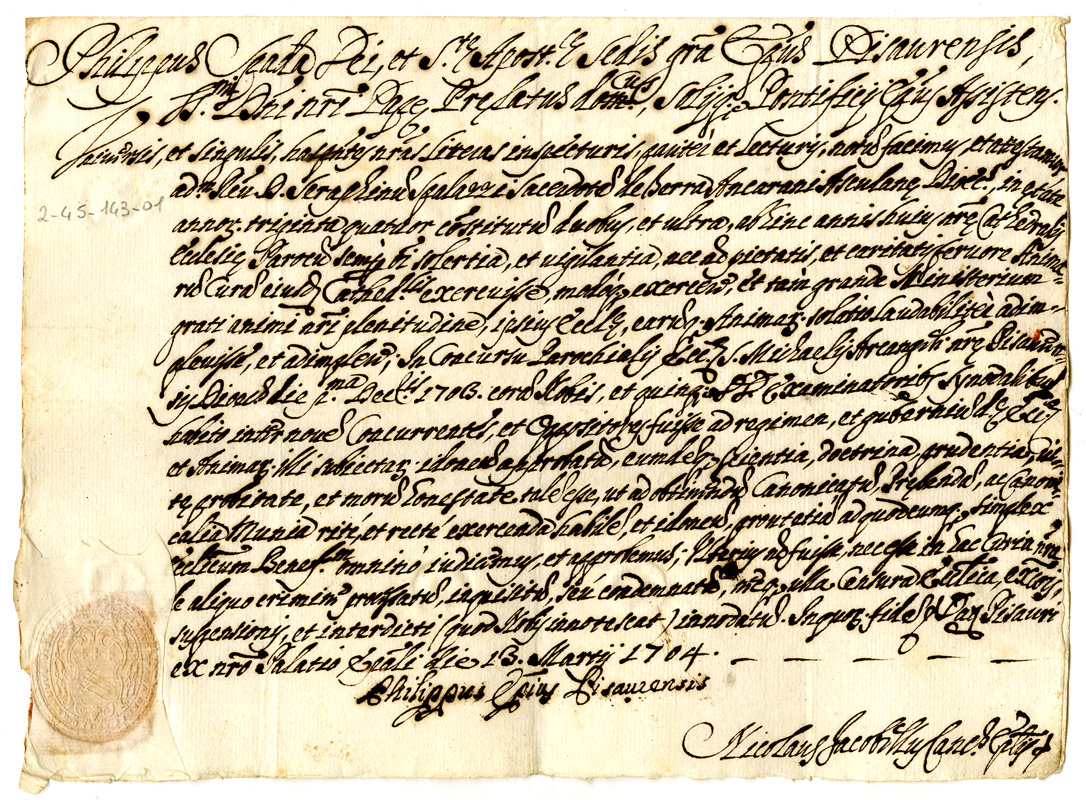 Philippus Spada Dei, et S.te Apost.ce Sedis grã Epũs Pisaurensis,
SS.mi Dñi nrĩ Papę Pręlatus dom.cus, Soliq Pontificij Epũs Assistens.
et singulis, has pntes nrãs literas inspecturis, paritèr et lecturis, notũ facimus, et attestamur
adm. Reũ D. Seraphinũ Spalazzi Sacerdotẽ de Terra Ancarani Asculanę Dioec., in ętate
annoꝝ triginta quatuor cõstitutũ duobus, et ultra, abhinc annis huius nrę Cathedralis
Ecclesię Parocũ semp ti solertia, et vigilantia, nec ad pietatis, et caritatis fervore
Curã eiusd. Cathed.lis exercuisse, modoq exercere, et tam grande Ministerium
grati animi nrĩ plenitudine, ipsius Eccl, earũq Animaꝝ solatio laudabilitèr adim-
plevisse, et adimplere; In Concursu Parochialis Eccl. S. Michaelis Arcangeli nrę Pisauren-
sis Dioec. die p.ma Dec.ris 1703. corã Nobis, et quinq PP. Examinatoribus Synodalibus
habito inter novẽ Concurrentes, et Oppositores fuisse ad regimen, et guberniũ d.ę Eccl.
et Animaꝝ illi subiectaꝝ idoneũ approbatũ, eumdemq scientia, doctrina, prudentia, vi-
tę probitate, et morũ honestate talẽ esse, ut ad obtinendũ Canonicatũ, Prębendã, ac Canoni-
calia Munia ritè, et rectè exercenda habilẽ, et idoneũ, prout etiã ad quodcumq Simplex
Benef.m omninò iudicamus, et approbamus; Ulterius nõ fuisse, nec esse in hac Curia nrã
de aliquo crimine processatũ, inquisitũ, seù condemnatũ, neq ulla Censura Eccleica, Excõis,
suspensionis, et interdicti (quod Nobis innotescat) innodatũ. In quoꝝ fidẽ Datũ Pisauri
ex nrõ Palatio Epali die 13. Martij 1704.
Philippus Epius Pisaurensis
Nicolaus Jacobellus Canc.s Eplis
2-45-143-01